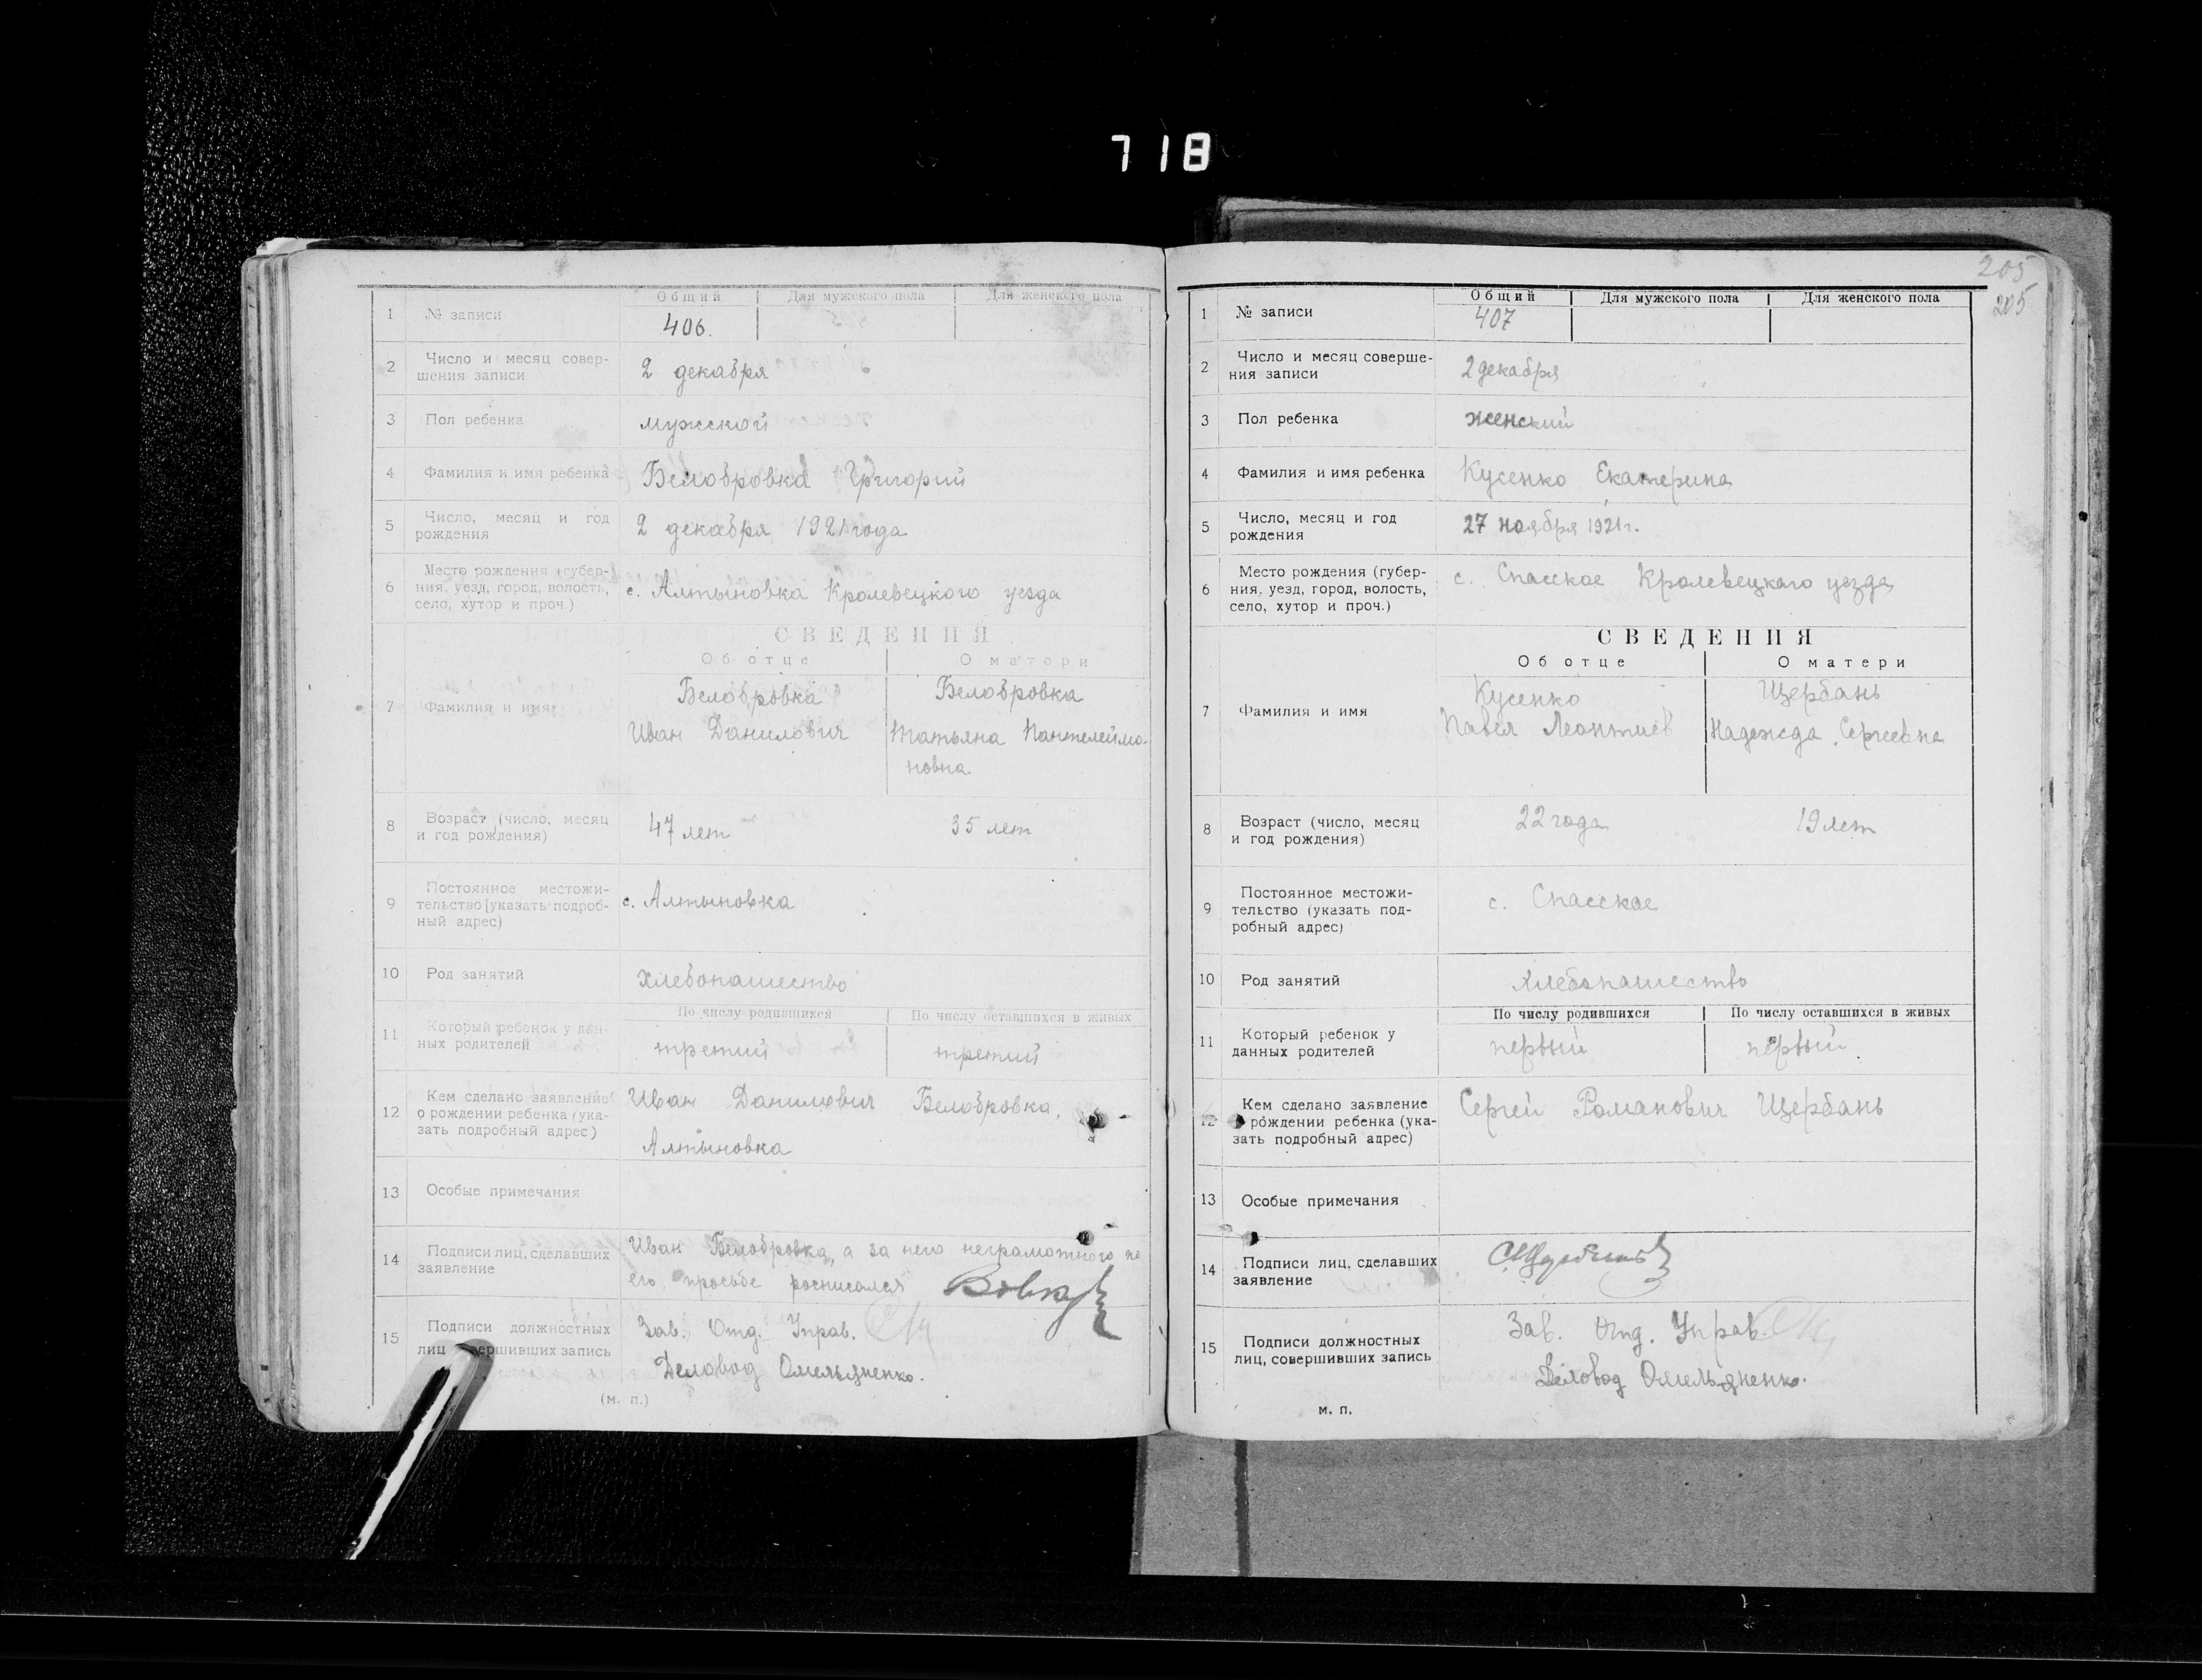 718
Общий Для мужского пола Для женского пола
1 № записи 406.
2 Число и месяц совер-
шения записи 2 декабря
3 Пол ребенка мужской
4 Фамилия и имя ребенка Белобровка Григорий
5 Число, месяц и год
рождения 2 декабря 1921 года
6 Место рождения (губер-
ния, уезд, город, волость, с. Алтыновка Кролевецкого уезда
село, хутор и проч.)
СВЕДЕНИЯ
Об отце О матери
7 Фамилия и имя Белобровка Белобровка
Иван Данилович Татьяна Пантелеймо-
новна
8 Возраст (число, месяц
и год рождения) 47 лет 35 лет
9 Постоянное местожи-
тельство (указать подроб- с. Алтыновка
ный адрес)
10 Род занятий хлебопашество
По числу родившихся По числу оставшихся в живых
11 Который ребенок у дан-
ных родителей третий третий
12 Кем сделано заявление Иван Данилович Белобровка,
о рождении ребенка (ука-
зать подробный адрес) Алтыновка
13 Особые примечания
14 Подписи лиц, сделавших Иван Белобровка, а за него неграмотного по
заявление его просьбе росписался
15 Подписи должностных Зав. Отд. Управ.
лиц совершивших запись Деловод Омельяненко.
(м. п.)
205
205
Общий Для мужского пола Для женского пола
1 № записи 407
2 Число и месяц соверше-
ния записи 2 декабря
3 Пол ребенка женский
4 Фамилия и имя ребенка Кусенко Екатерина
5 Число, месяц и год
рождения 27 ноября 1921 г.
6 Место рождения (губер-
ния, уезд, город, волость, с. Спасское Кролевецкаго уезда
село, хутор и проч.)
СВЕДЕНИЯ
Об отце О матери
7 Фамилия и имя Кусенко Щербань
Павел Леонтиев Надежда Сергеевна
8 Возраст (число, месяц
и год рождения) 22 года 19 лет
9 Постоянное местожи-
тельство (указать под- с. Спасское
робный адрес)
10 Род занятий хлебопашество
По числу родившихся По числу оставшихся в живых
11 Который ребенок у
данных родителей первый первый
12 Кем сделано заявление Сергей Романович Щербань
рождении ребенка (ука-
зать подробный адрес)
13 Особые примечания
14 Подписи лиц, сделавших
заявление
15 Подписи должностных Зав. Отд. Управ.
лиц, совершивших запись Деловод Омельяненко.
м. п.